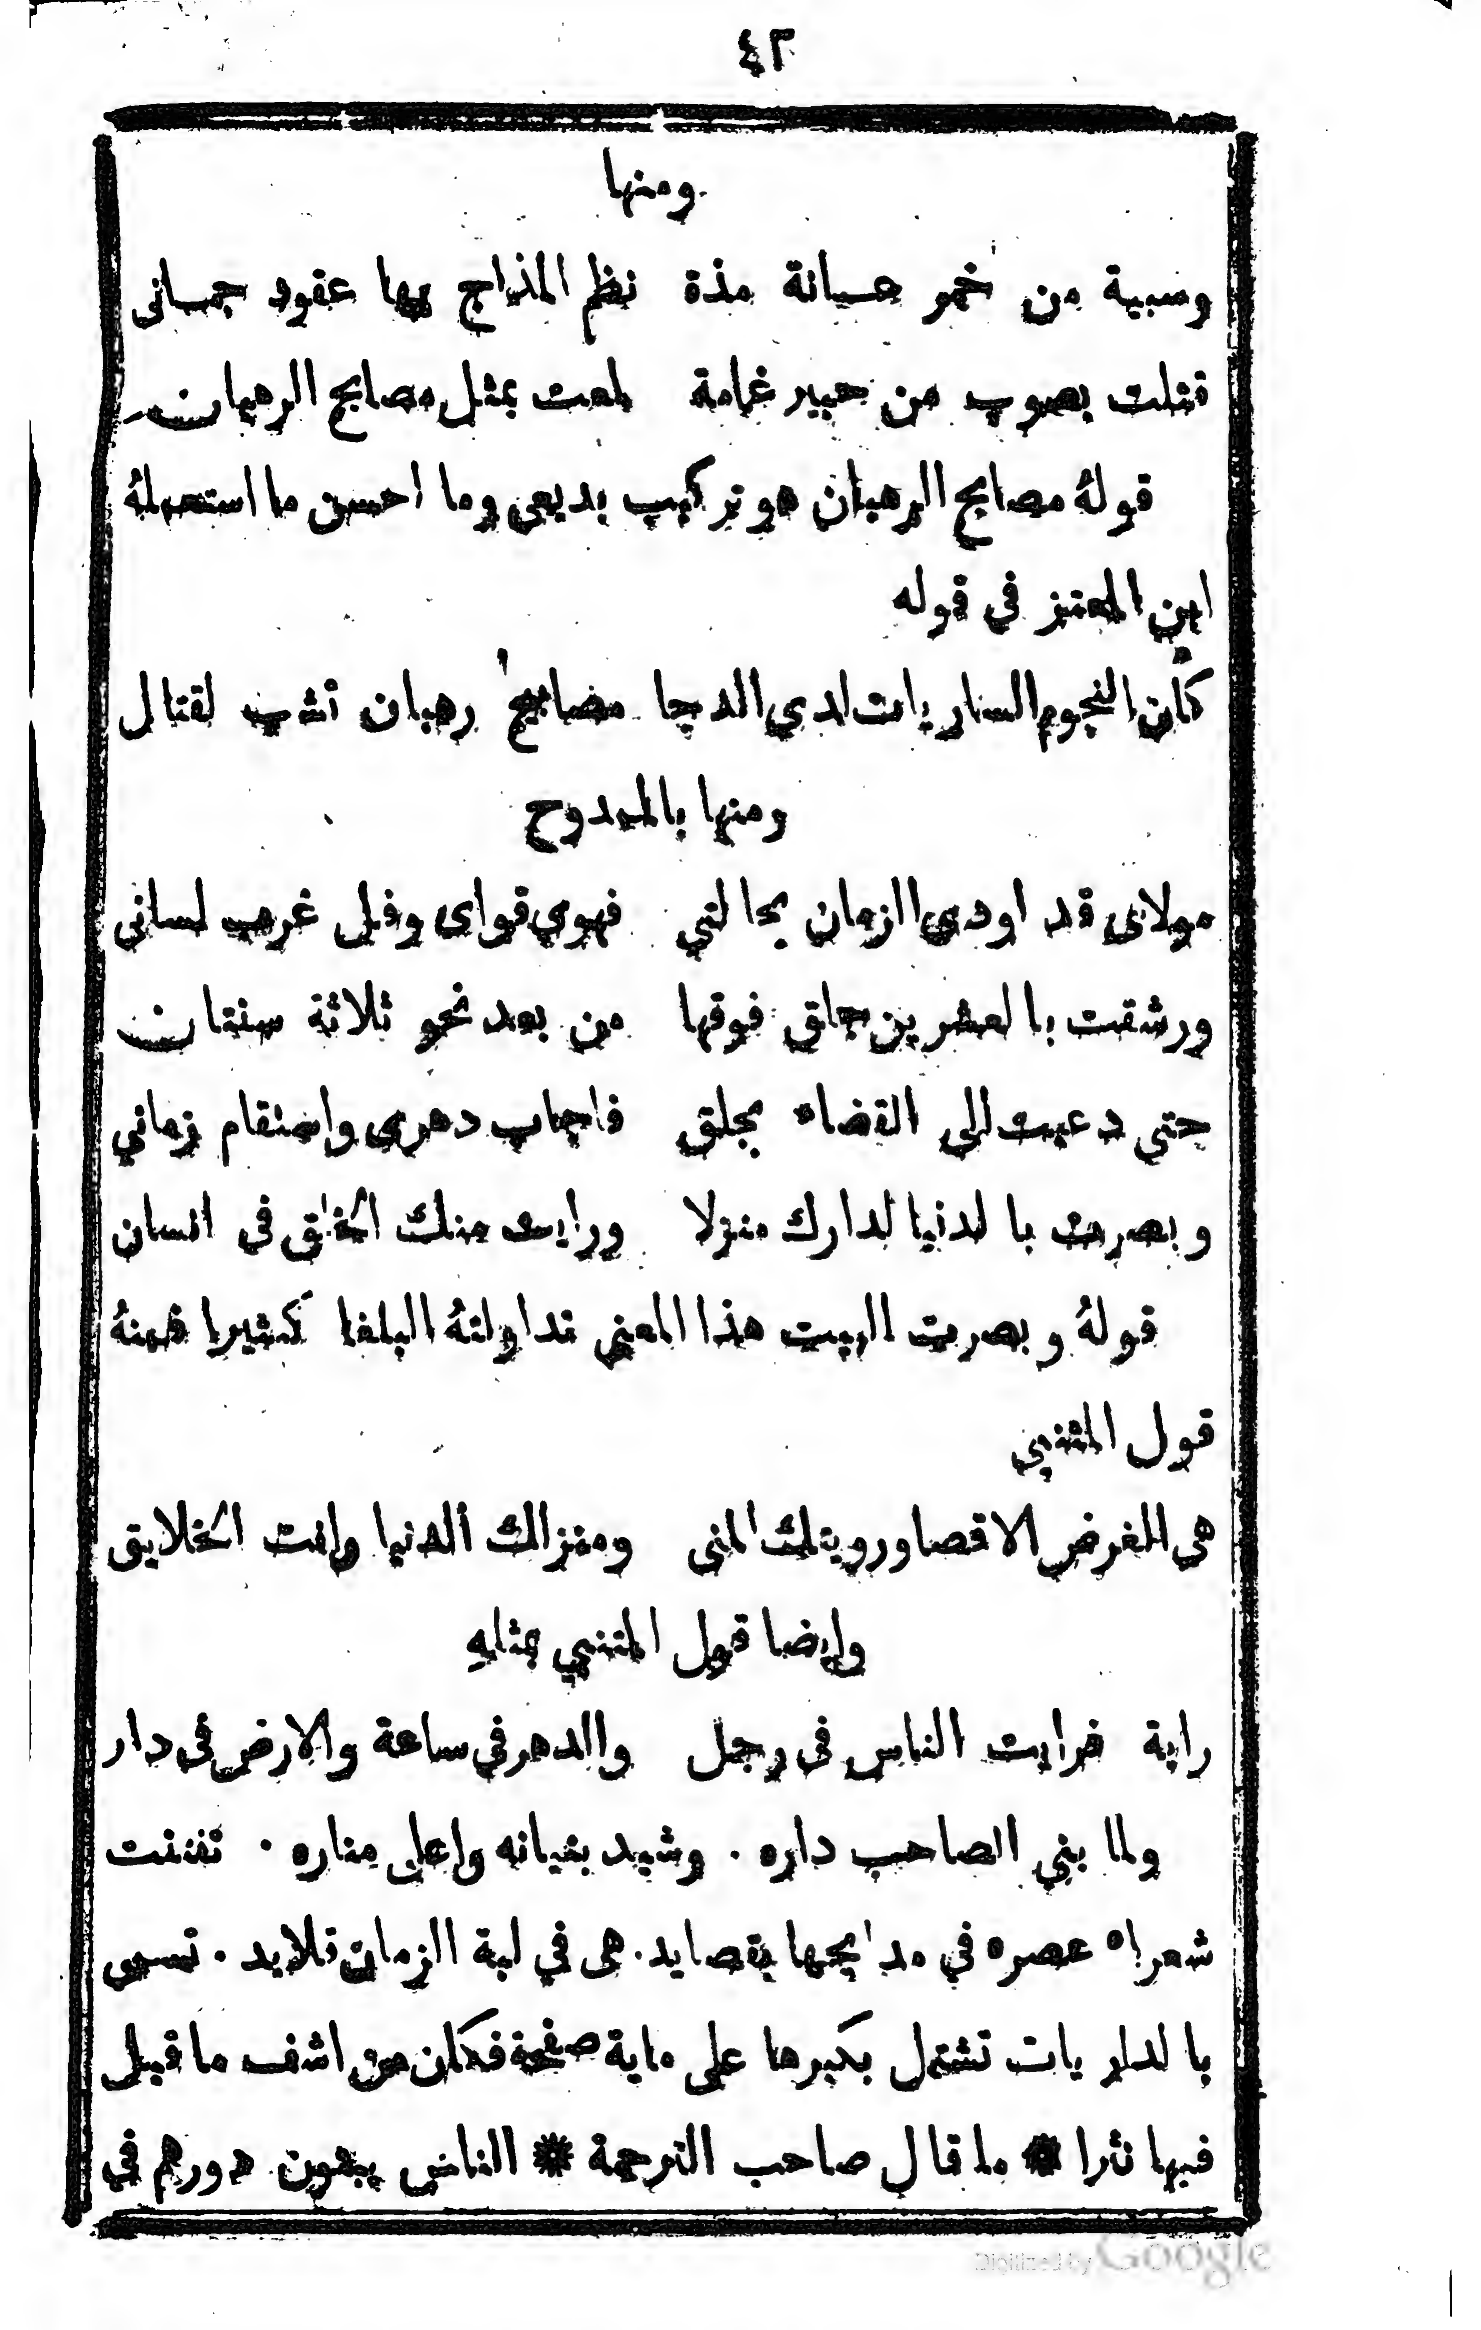 ٤٣
ومنها
وسبية من خمر حسانة مذة نظم المذاج بها عقود جمانى
قتلت بصوب من حبير غمامة لمعت بمثل مصابح الرهبان
قولهُ مصابح الرهبان هو تركيب بديعى وما احسن ما استعملهُ
ابن المعتز في قوله
كأن النجوم الساريات لدي الدجا مصابيح رهبان تشب لقتال
ومنها بالممدوح
مولاى قد اودي الزمان بحالتي فهوي قواى وفل غرب لسانى
ورشقت بالعشرين جلق فوقها من بعد نحو ثلاثة سنتان
حتى دعيت الى القضاء بجلق فاجاب دهرى واستقام زماني
وبصرت بالدنيا لدارك منزلا ورايت منك الخلق في انسان
قولهُ وبصرت البيت هذا المعني تداولتهُ البلغا كثيرا فمنهُ
قول المتنبي
هي الغرض الاقصا ورويتك المنى ومنزالك الدنيا وانت الخلايق
وايضا قول المتنبي بمثلهِ
راية فرايت الناس في رجل والدهر في ساعة والارض في دار
ولما بني الصاحب داره . وشيد بنيانه واعلى مناره . تفننت
شعراء عصره في مدايحها بقصايد . هى في لبة الزمان قلايد . تسمى
بالداريات تشتمل بكبرها على ماية صفحة فكان من اشف ما قيل
فيها نثرا ❋ ما قال صاحب الترجمة ❋ الناس يبنون دورهم في
Digitized by Google